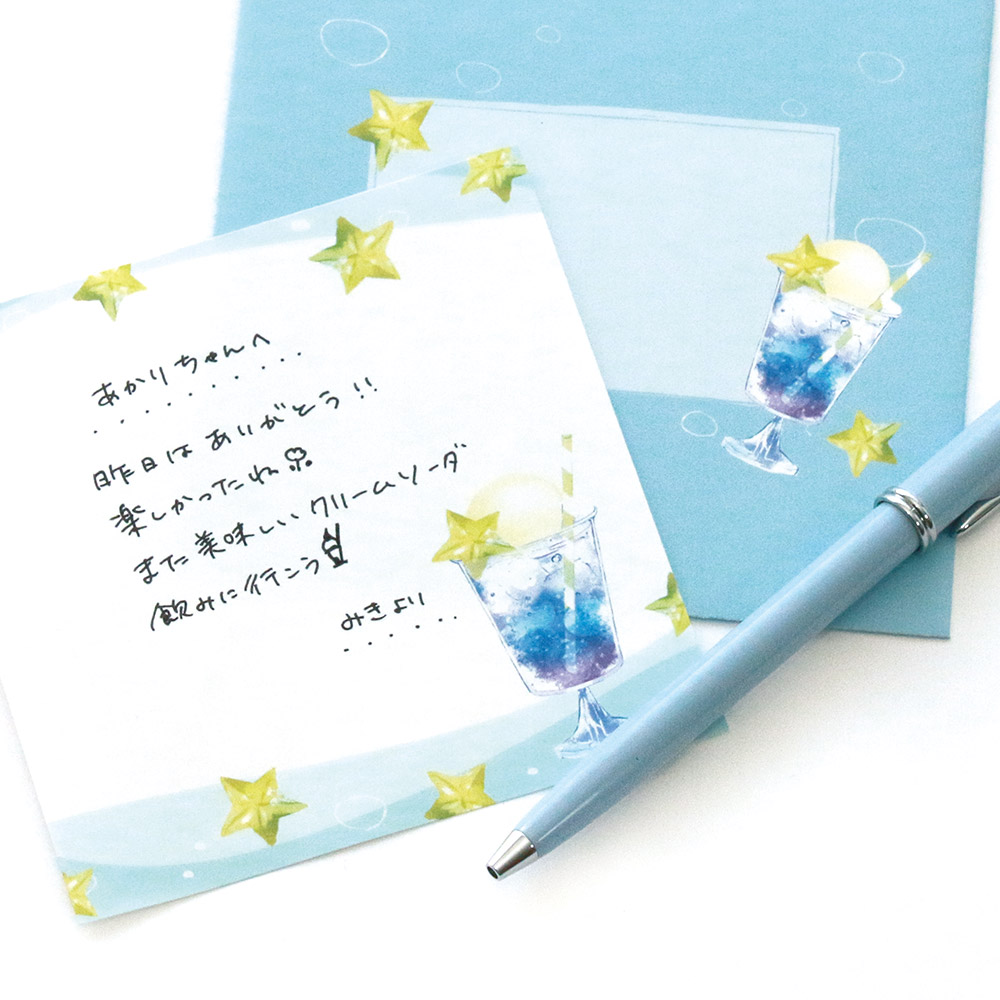 あかりちゃんへ
昨日はありがとう!!
楽しかったね
また美味しいクリームソーダ
飲みに行こう
みきより